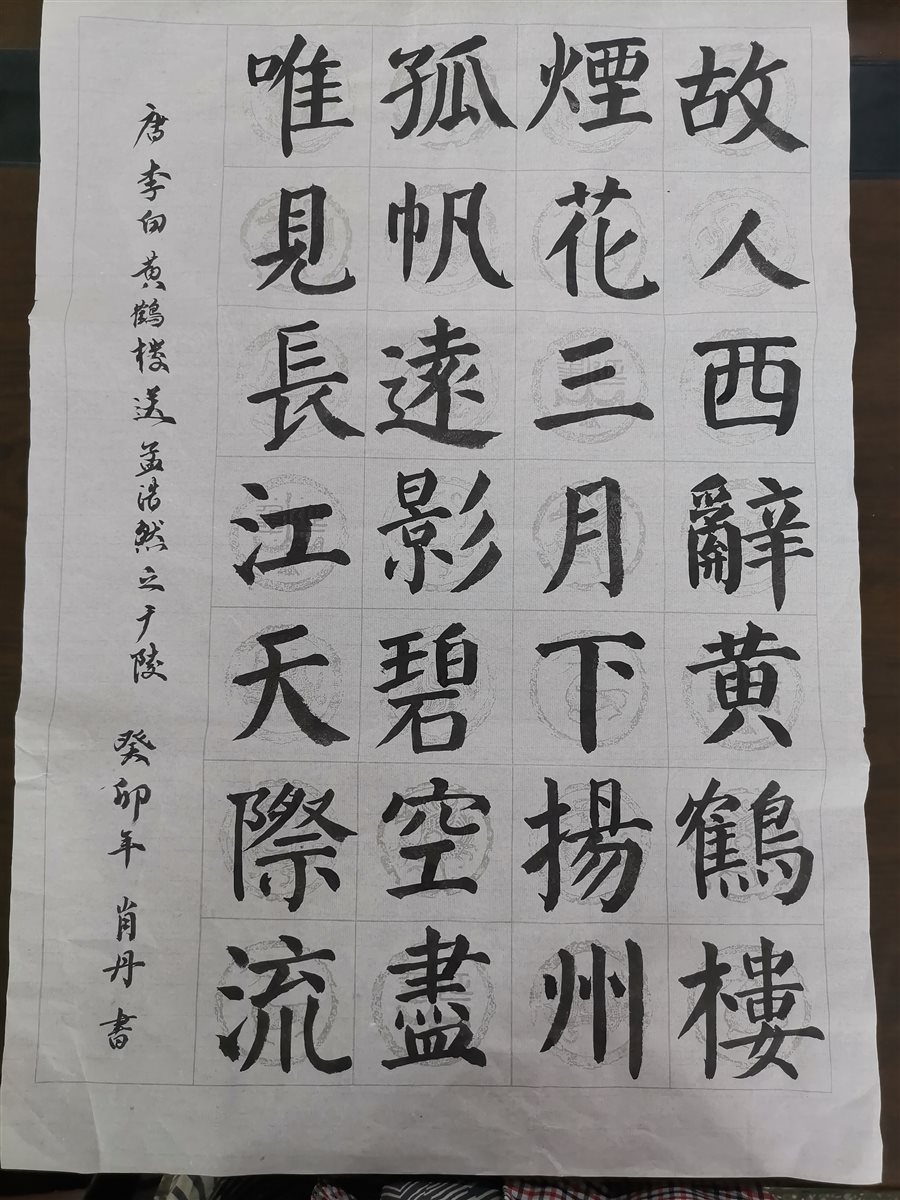 故人西辭黄鶴樓
煙花三月下揚州
孤帆遠影碧空盡
唯見長江天際流
唐李白黄鶴楼送孟浩然之于陵 癸卯年 肖丹書